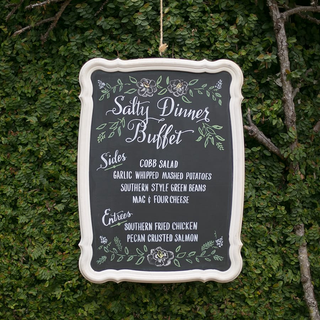 Salty Dinner
Buffet
Sides
COBB SALAD
GARLIC WHIPPED MASHED POTATOES
SOUTHERN STYLE GREEN BEANS
MAC & FOUR CHEESE
Entrées
SOUTHERN FRIED CHICKEN
PECAN CRUSTED SALMON